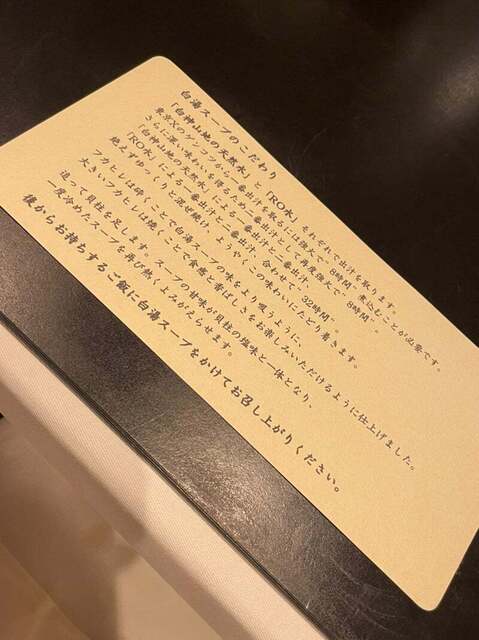 白湯スープのこだわり
「白神山地の天然水」と「RO水」それぞれで出汁を取ります。
東京Xのゲンコツから一番出汁を取るには強火で“8時間”煮込むことが必要です。
さらに深い味わいを得るため二番出汁として再度強火で“8時間”。
「白神山地の天然水」による一番出汁と二番出汁、
「RO水」による一番出汁と二番出汁、合わせて“32時間”。
絶えずゆっくりと混ぜ続け、ようやくこの味わいにたどり着きます。
フカヒレは砕くことで白湯スープの味をより吸うように、
大きいフカヒレは焼くことで食感と香ばしさをお楽しみいただけるように仕上げました。
追って貝柱を足します。スープの甘味が貝柱の塩味と一体となり、
一度冷めたスープを再び熱しよみがえらせます。
後からお持ちするご飯に白湯スープをかけてお召し上がりください。